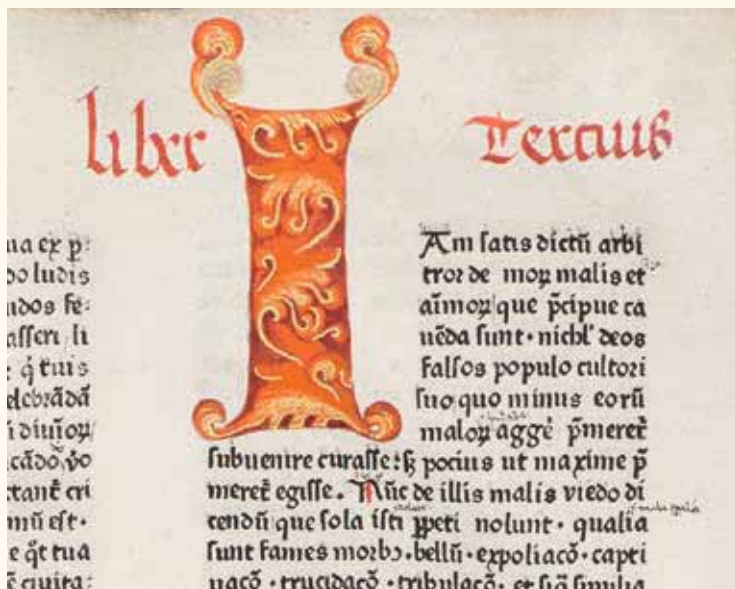 liber Tercius
na ex p:
do ludis
ndos fe:
asseri, li
q̃ tuis
elebrãdã
ĩ diuĩoꝝ
cãdõ, vo
ctant̃ cri
mũ est·
e q̃t tua
ẽ ciuita:
Am satis dictũ arbi
tror de moꝝ malis et
aĩmoꝝ que p̃cipue ca
uẽda sunt· nichl' deos
falsos populo cultori
suo quo minus eorũ
maloꝝ aggẽ p̃meret̃
subuenire curasse: sꝫ pocius ut maxime p̃
meret̃ egisse. Nũc de illis malis viedo di
cendũ que sola isti ꝑpeti nolunt· qualia
sunt fames morbꝰ· bellũ· expoliacõ· capti
uacõ· trucidacõ· tribulacõ· et siq̃ similia